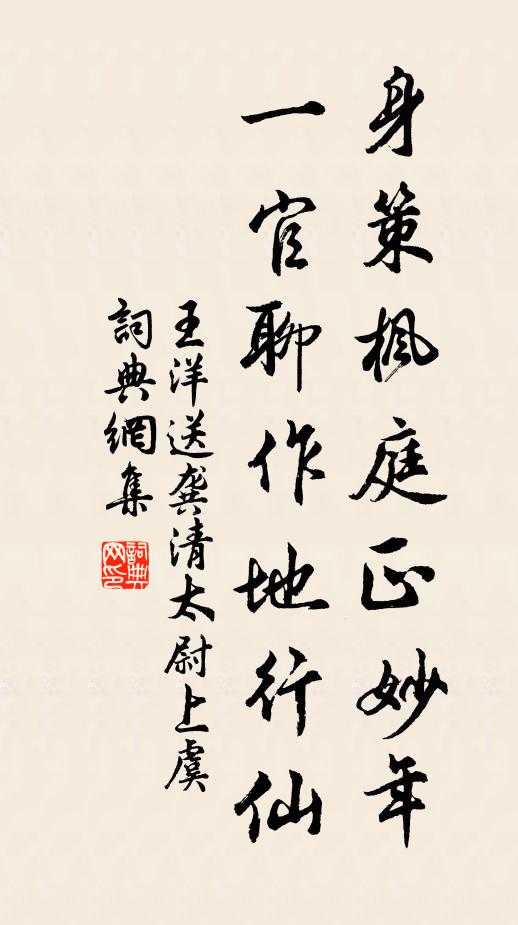 身策楓庭正妙年
一官聊作地行仙
王洋送龔清太尉上虞
詞典網集
詞典
网印